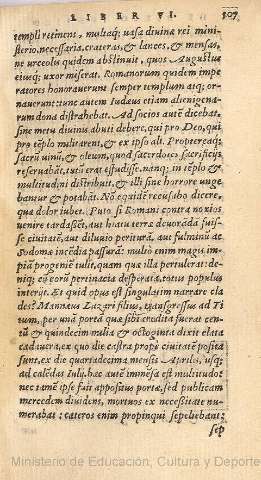 LIBER VI. 807
templi retinens, multaq; uasa diuinæ rei mini-
sterio necessaria, crateras, & lances, & mensas,
ne urceolis quidem abstinuit, quos Augustus
eiusq; uxor miserat. Romanorum quidem impe
ratores honorauerunt semper templum atq; or-
nauerunt: tunc autem Iudæus etiam alienigena-
rum dona distrahebat. Ad socios autē dicebat,
sine metu diuinis abuti debere, qui pro Deo, qui
pro tēplo militarent, & ex ipso ali. Propterea q;
sacrū uinū, & oleum, quod sacerdotes sacrificijs
reseruabāt, tutò erat effudisse. nanq; in tēplo &
multitudini distribuit, & illi sine horrore unge
bantur & potabāt. Nō equidē recusabo dicere,
quæ dolor iubet. Puto si Romani contra noxios
uenire tardassēt, aut hiatu terræ deuorādā fuis-
se ciuitatē, aut diluuio perituram, aut fulminū ac
Sodomæ incēdia passurā: multò enim magis im-
piā progeniē tulit, quàm quæ illa pertulerat: de-
niq; cū eorū pertinacia desperata, totus populus
interijt. Et quid opus est singulatim narrare cla
des? Mannæus Lazari filius, transgressus ad Ti
tum, per unā portā quæ sibi credita fuerat cen-
tū & quindecim milia & octoginta dixit elata
cadauera, ex quo die castra propè ciuitatē posita
sunt, ex die quartadecima mensis Aprilis, usq;
ad calēdas Iuly. hæc autē immēsa est multitudo:
nec tamē ipse fuit appositus portæ, sed publicam
mercedem diuidens, mortuos ex necessitate nu-
merabat: cæteros enim propinqui sepeliebant:
sep
Ministerio de Educación, Cultura y Deporte